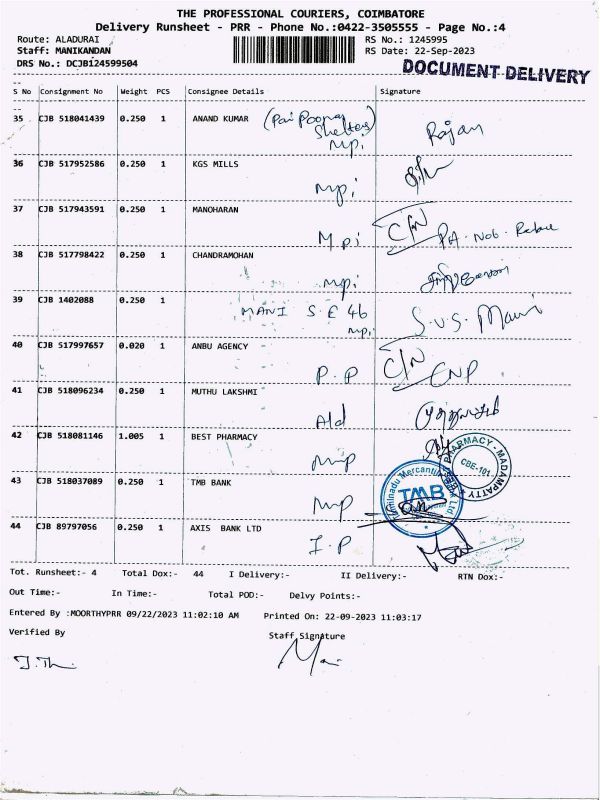 THE PROFESSIONAL COURIERS, COIMBATORE
Delivery Runsheet - PRR - Phone No.:0422-3505555 - Page No.:4
Route: ALADURAI RS No.: 1245995
Staff: MANIKANDAN RS Date: 22-Sep-2023
DRS No.: DCJB124599504 DOCUMENT DELIVERY
S No Consignment No Weight PCS Consignee Details Signature
35 CJB 518041439 0.250 1 ANAND KUMAR Rajan
Shelters)
mpi
36 CJB 517952586 0.250 1 KGS MILLS
mpi
37 CJB 517943591 0.250 1 MANOHARAN C/N
Mpi
38 CJB 517798422 0.250 1 CHANDRAMOHAN
mpi
39 CJB 1402088 0.250 1 MANI S.E 46 S.V.S. Mani
mpi
40 CJB 517997657 0.020 1 ANBU AGENCY C/N
P.P CNP
41 CJB 518096234 0.250 1 MUTHU LAKSHMI
Ald
42 CJB 518081146 1.005 1 BEST PHARMACY
mp
BEST PHARMACY - MADAMPATTY
CBE-101
43 CJB 518037089 0.250 1 TMB BANK
mp
Tamilnadu Mercantile Bank Ltd
TMB
44 CJB 89797056 0.250 1 AXIS BANK LTD
I.P
Tot. Runsheet:- 4 Total Dox:- 44 I Delivery:- II Delivery:- RTN Dox:-
Out Time:- In Time:- Total POD:- Delvy Points:-
Entered By :MOORTHYPRR 09/22/2023 11:02:10 AM Printed On: 22-09-2023 11:03:17
Verified By Staff Signature